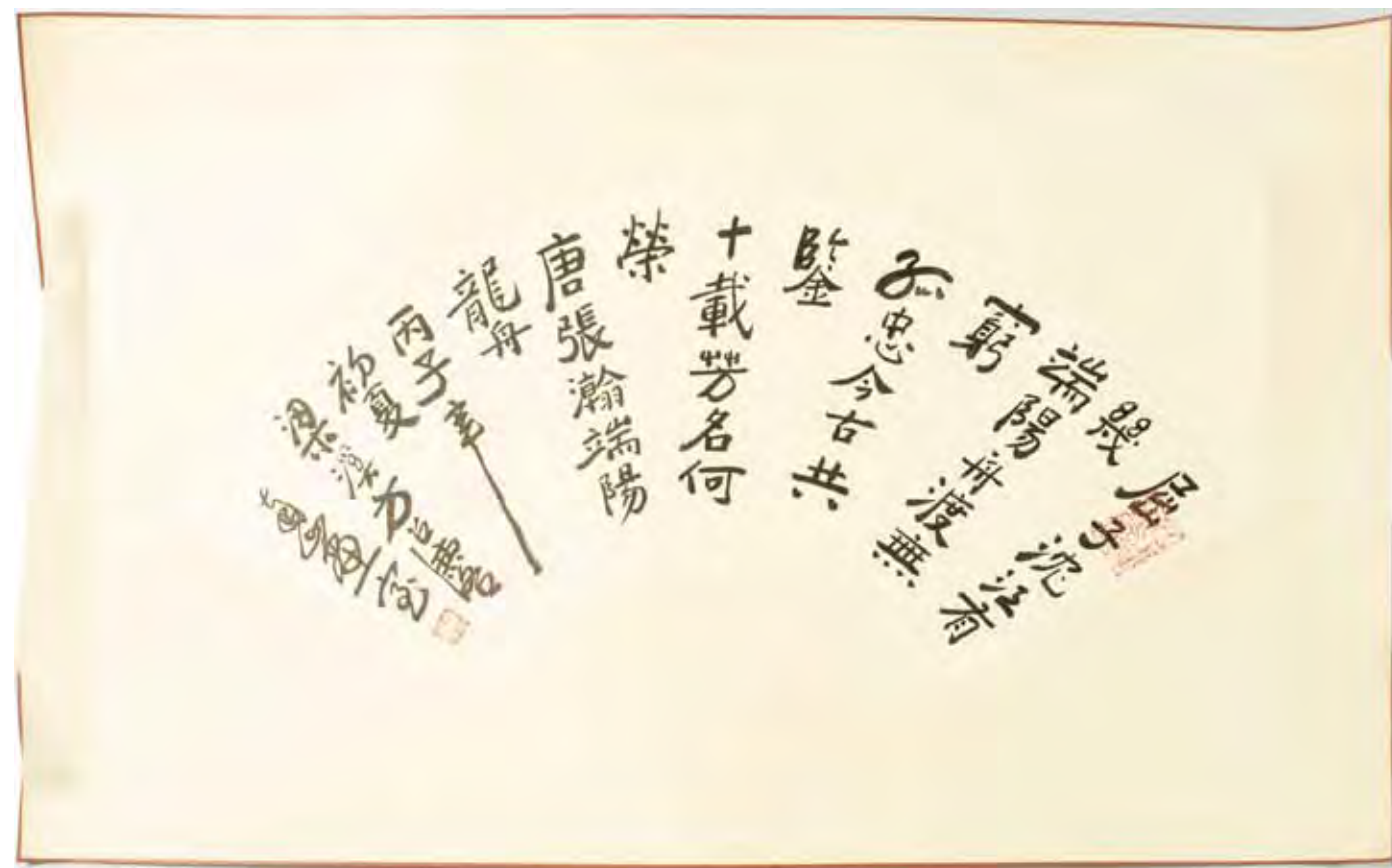 屈子沈江有
幾
端陽舟渡無
窮
孤忠今古共
鑒
十載芳名何
榮
唐張瀚端陽
龍舟
丙子年
初夏